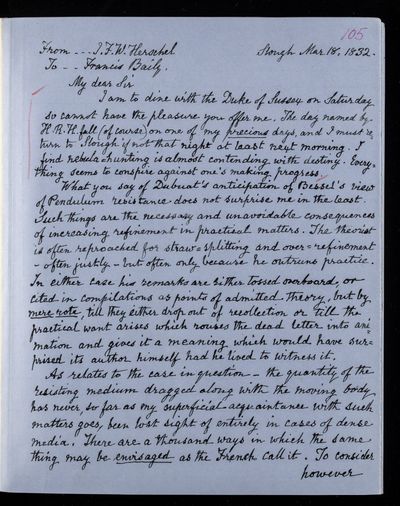 105
From --- J.F.W. Herschel Slough Mar. 18, 1832.
To -- Francis Baily.
My dear Sir
I am to dine with the Duke of Sussex on Saturday
so cannot have the pleasure you offer me. The day named by
H.R.H. fall (of course) on one of my precious days, and I must re,
turn to Slough if not that night at least next morning. I
find nebula-hunting is almost contending with destiny. Every,
thing seems to conspire against one's making progress.
What you say of Dubuat's anticipation of Bessel's view
of Pendulum resistance does not surprise me in the least.
Such things are the necessary and unavoidable consequences
of increasing refinement in practical matters. The theorist
is often reproached for straw=splitting and over=refinement
- often justly - but often only because he outruns practice.
In either case his remarks are either tossed overboard, or
cited in compilations as points of admitted theory, but by
mere rote, till they either drop out of recollection or till the
practical want arises which rouses the dead letter into ani=
mation and gives it a meaning which would have sur=
prised its author himself had he lived to witness it.
As relates to the case in question -- the quantity of the
resisting medium dragged along with the moving body
has never, so far as my superficial acquaintance with such
matters goes, been lost sight of entirely in cases of dense
media. There are a thousand ways in which the same
thing may be envisaged as the French call it. To consider
however